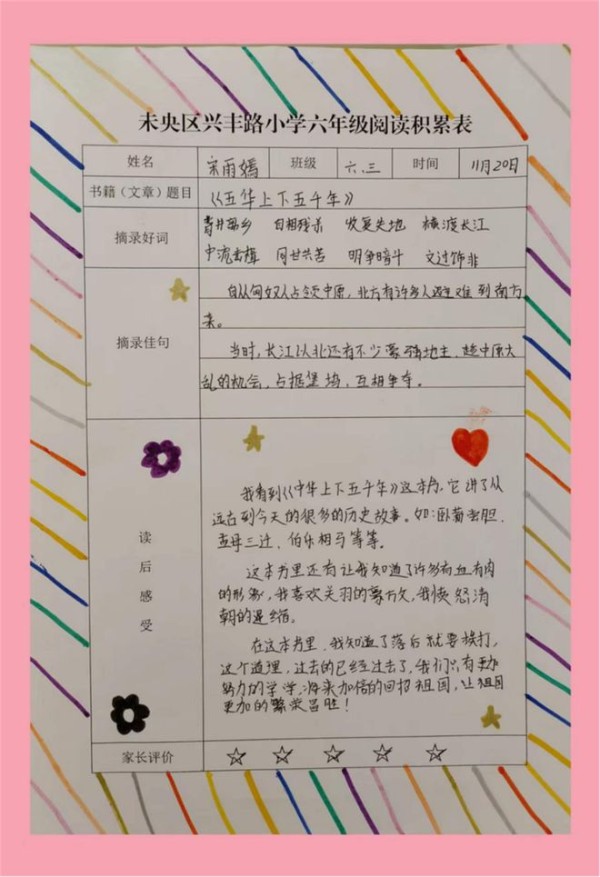 未央区兴丰路小学六年级阅读积累表
姓名 宋雨嫣 班级 六.三 时间 11月20日
书籍（文章）题目 《五华上下五千年》
摘录好词 背井离乡 自相残杀 收复失地 横渡长江
中流击楫 同甘共苦 明争暗斗 文过饰非
摘录佳句 自从匈奴人占领中原，北方有许多人避难到南方
来。
当时，长江以北还有不少豪强地主，趁中原大
乱的机会，占据堡坞，互相争夺。
读后感受
我看到《中华上下五千年》这本书，它讲了从
远古到今天的很多的历史故事。如：卧薪尝胆、
孟母三迁、伯乐相马等等。
这本书里还有让我知道了许多有血有肉
的形象，我喜欢关羽的，我愤怒清
朝的退缩。
在这本书里，我知道了落后就要挨打，
这个道理，过去的已经过去了，我们只有更加
努力的学，将来加倍的回报祖国，让祖国
更加的繁荣昌胜！
家长评价 ☆ ☆ ☆ ☆ ☆